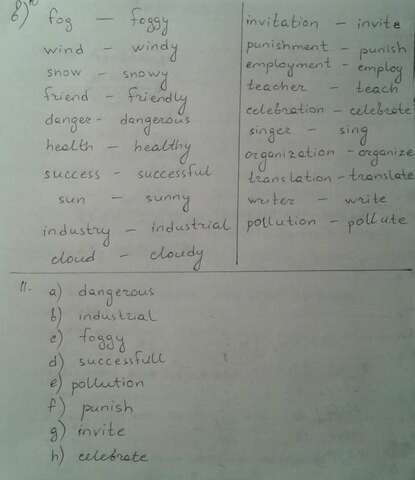 б) fog — foggy
wind — windy
snow — snowy
friend — friendly
danger - dangerous
health — healthy
success - successful
sun - sunny
industry — industrial
cloud - cloudy
invitation — invite
punishment - punish
employment - employ
teacher — teach
celebration - celebrate
singer — sing
organization - organize
translation - translate
writer — write
pollution — pollute
11. a) dangerous
b) industrial
c) foggy
d) successfull
e) pollution
f) punish
g) invite
h) celebrate